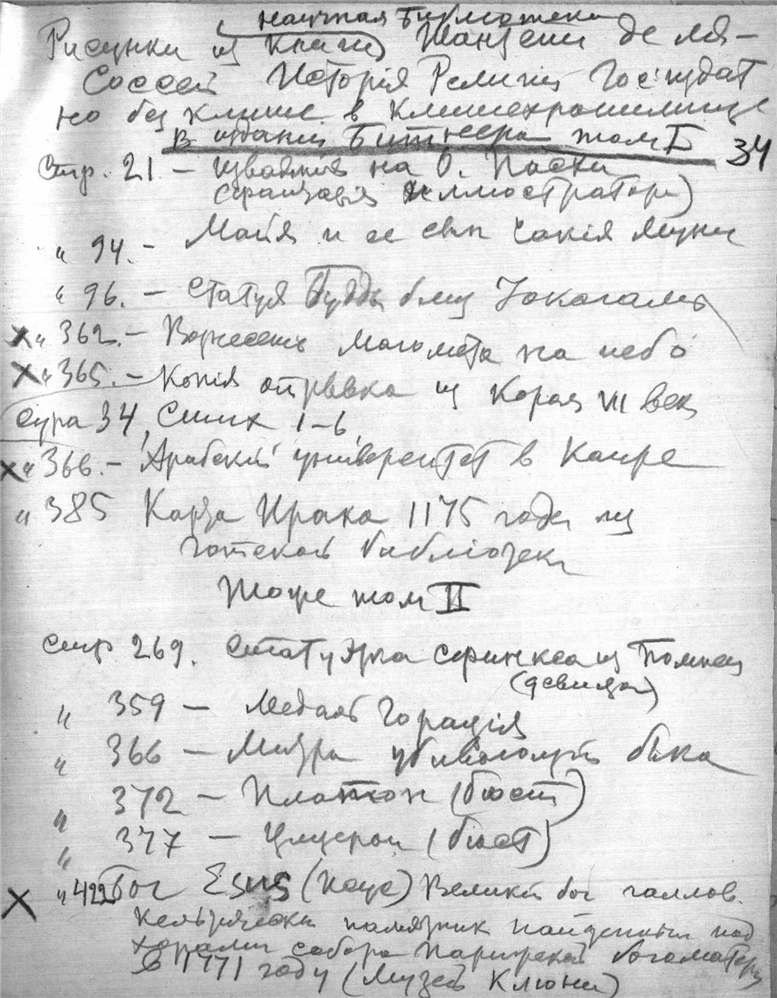 научная Библиотека
Рисунки из книги Шантепи де ля-
Соссей Исторія Религии Госиздат
но без клише в клишехранилище
в издании Битнера том I 34
Стр. 21. – изваяния на О. Пасхи
иллюстратора)
" 94. – Майя и ее сын Чакія Муни
" 96. – Статуя Будды близ Иокогамы
х " 362. – Вознесень Магомета на небо
х " 365. – Копія отрывка из Корана VII век
Сура 34, Стих 1–6
х " 366. – Арабский университет в Каире
" 385 Карта Ирака 1175 года из
готской библіотеки
Тоже том II
Стр 269. Статуэтка сфинкса из Помпеи
(девица)
" 359 – Медаль Горація
" 366 – Митра убивающий быка
" 372 – Платон (бюст)
" 377 – Цицерон (бюст)
х " 422 бог Esus (Исус) Великий бог галлов.
Кельтический памятник найденный под
хорами собора Парижской богоматери
в 1771 году (Музей Клюни)